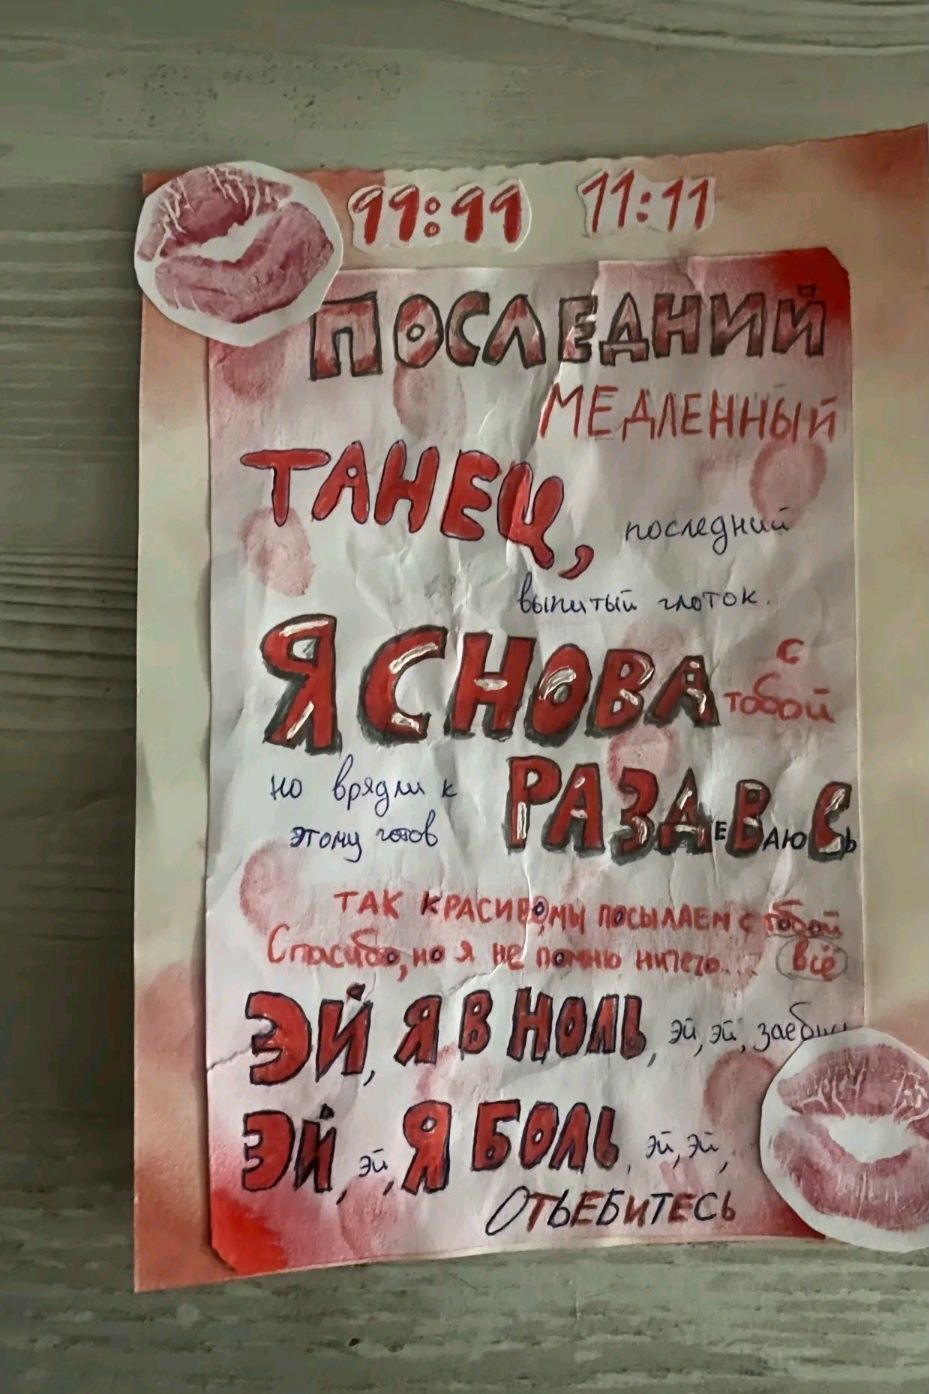 11:11 11:11
ПОСЛЕДНИЙ
МЕДЛЕННЫЙ
ТАНЕЦ, последний
выпитый глоток.
Я СНОВА с тобой
РАЗДЕВАЮСЬ
но врядли к
этому готов
ТАК КРАСИВО мы посылаем с тобой
Спасибо, но я не помню ничего... Всё
ЭЙ, Я В НОЛЬ, эй, эй,
ЭЙ, эй, Я БОЛЬ, эй, эй,
ОТЪЕБИТЕСЬ